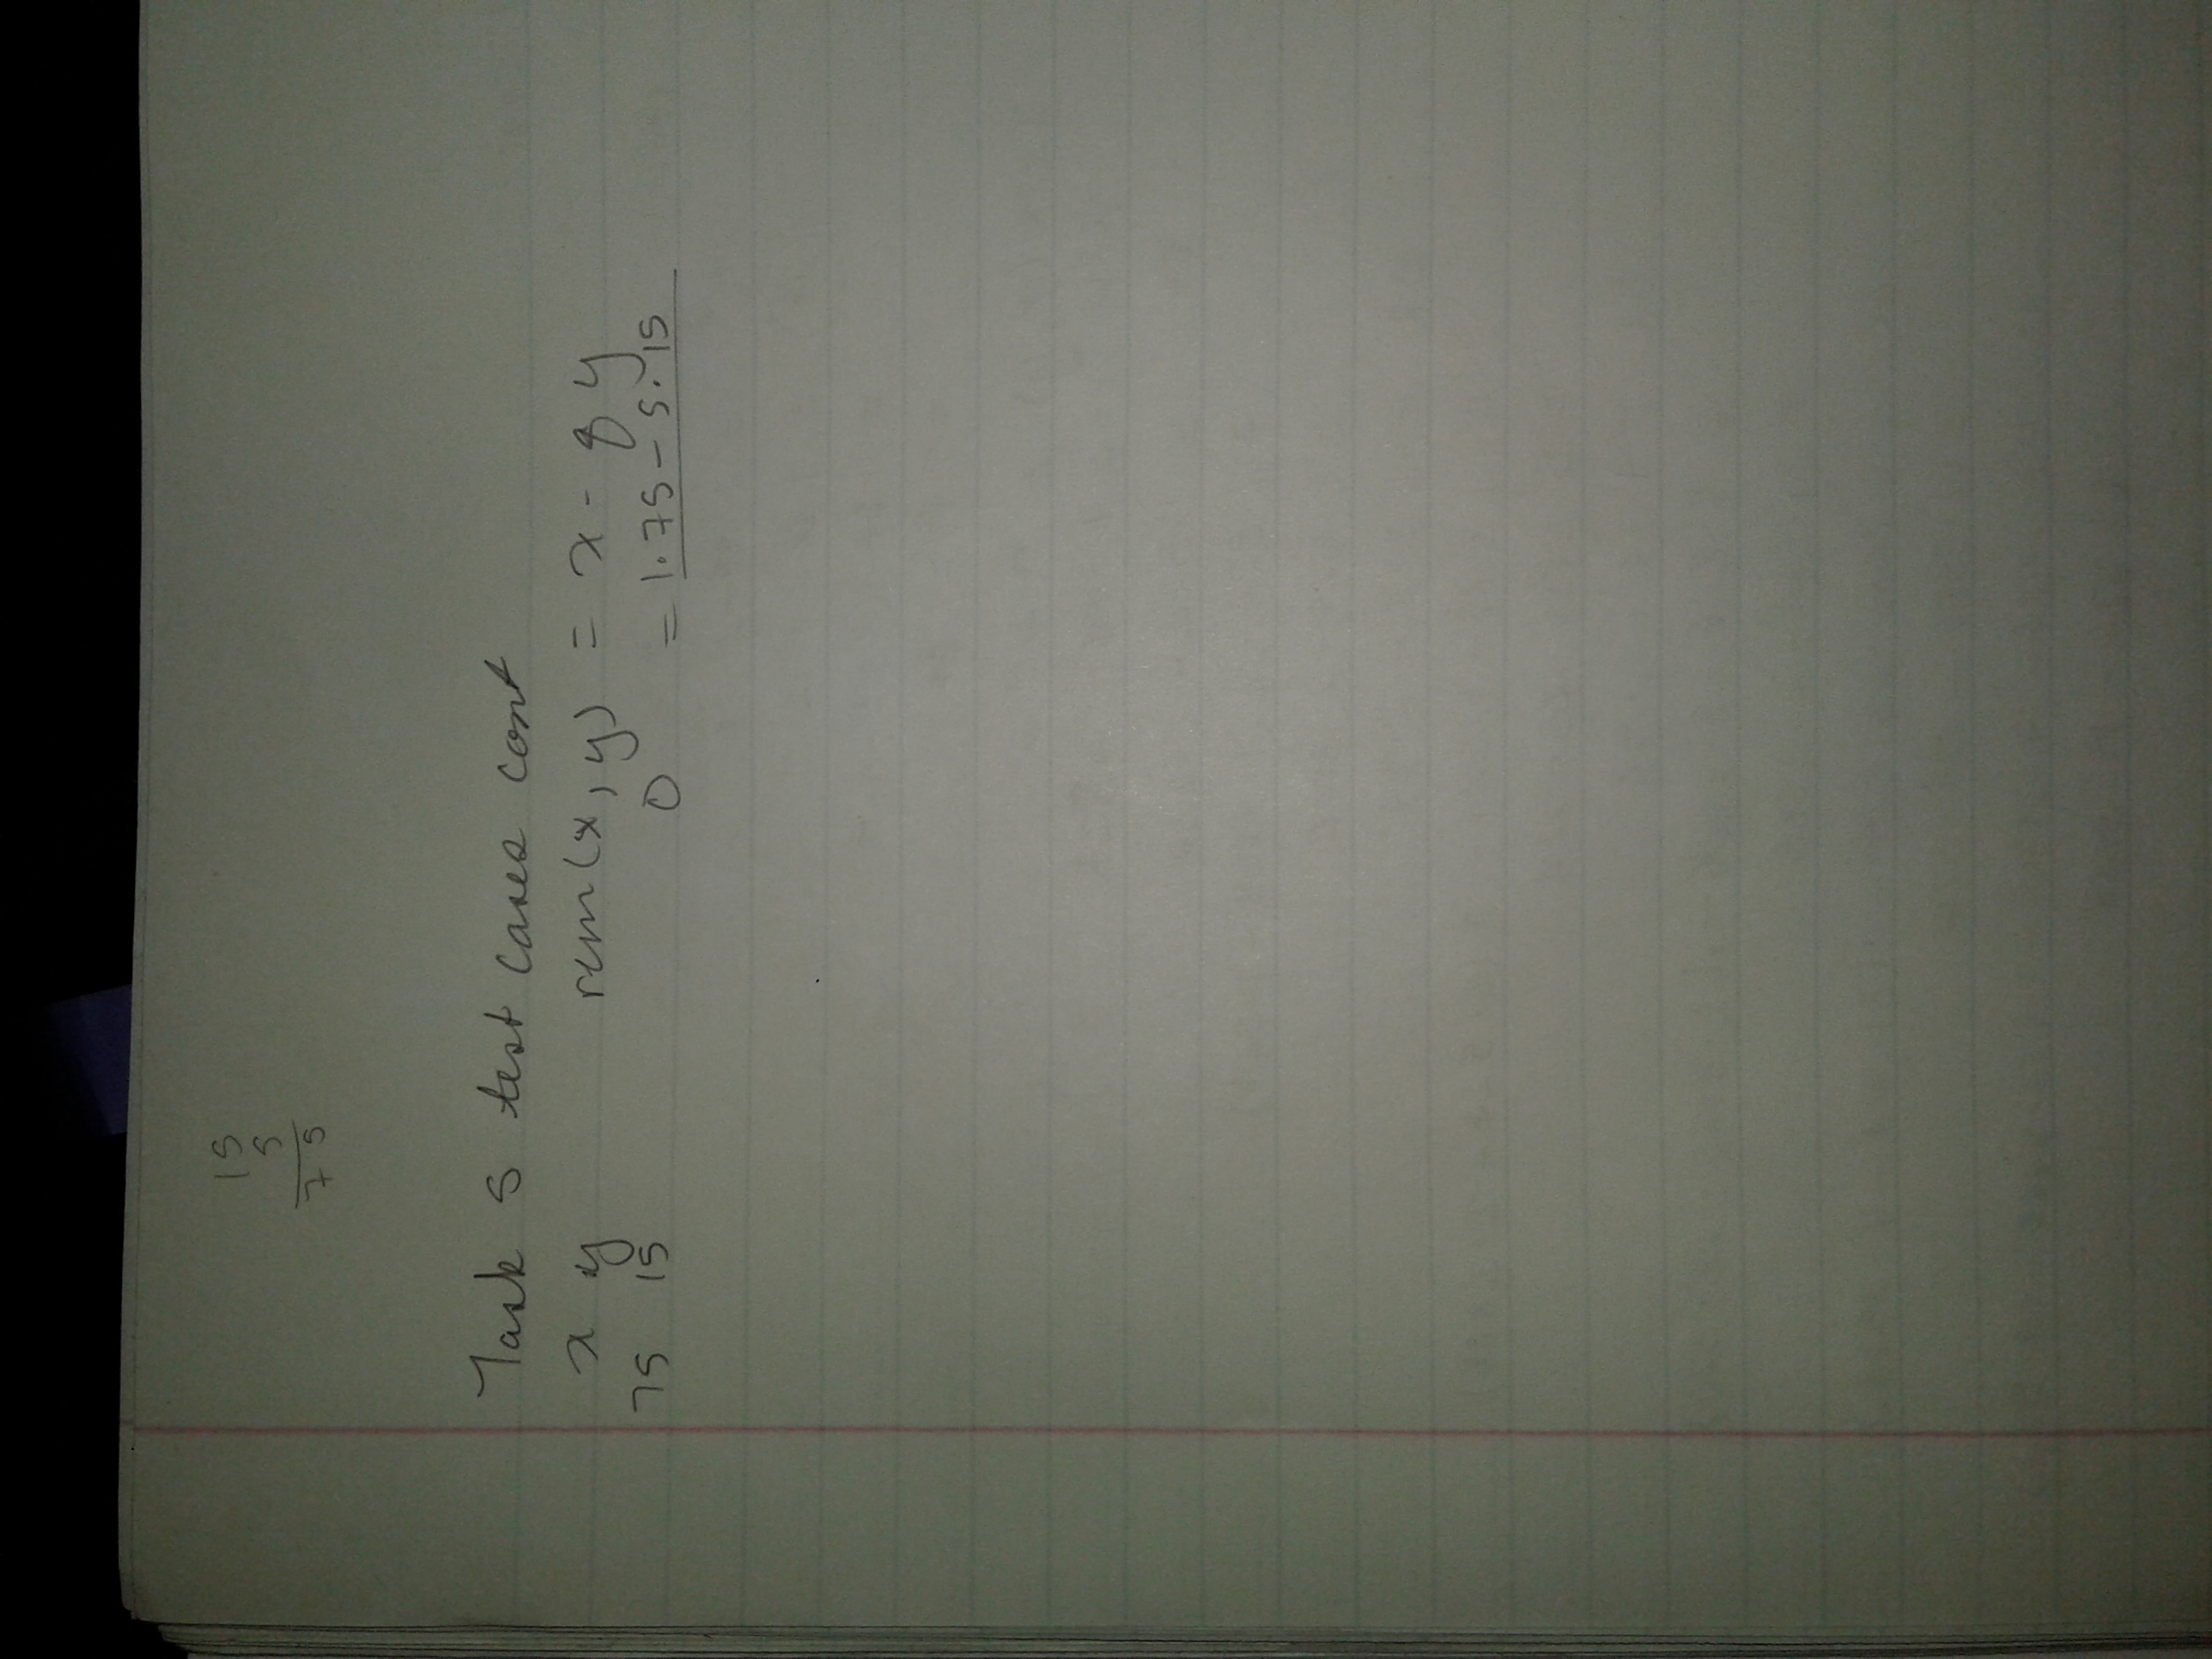 15
5
75
Task 5 test cases cont
x y rem(x, y) = x - q y
75 15 0 = 1.75 - 5.15